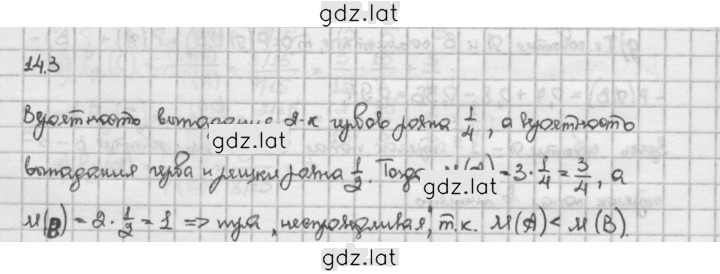 gdz.lat
14.3
Вероятность выпадания 2-х гербов равна 1/4, а вероятность
gdz.lat
выпадания герба и решки равна 1/2. Тогда M(A) = 3 · 1/4 = 3/4, а
gdz.lat
M(B) = 2 · 1/2 = 1 => игра „несправедливая", т.к. M(A) < M(B).
gdz.lat